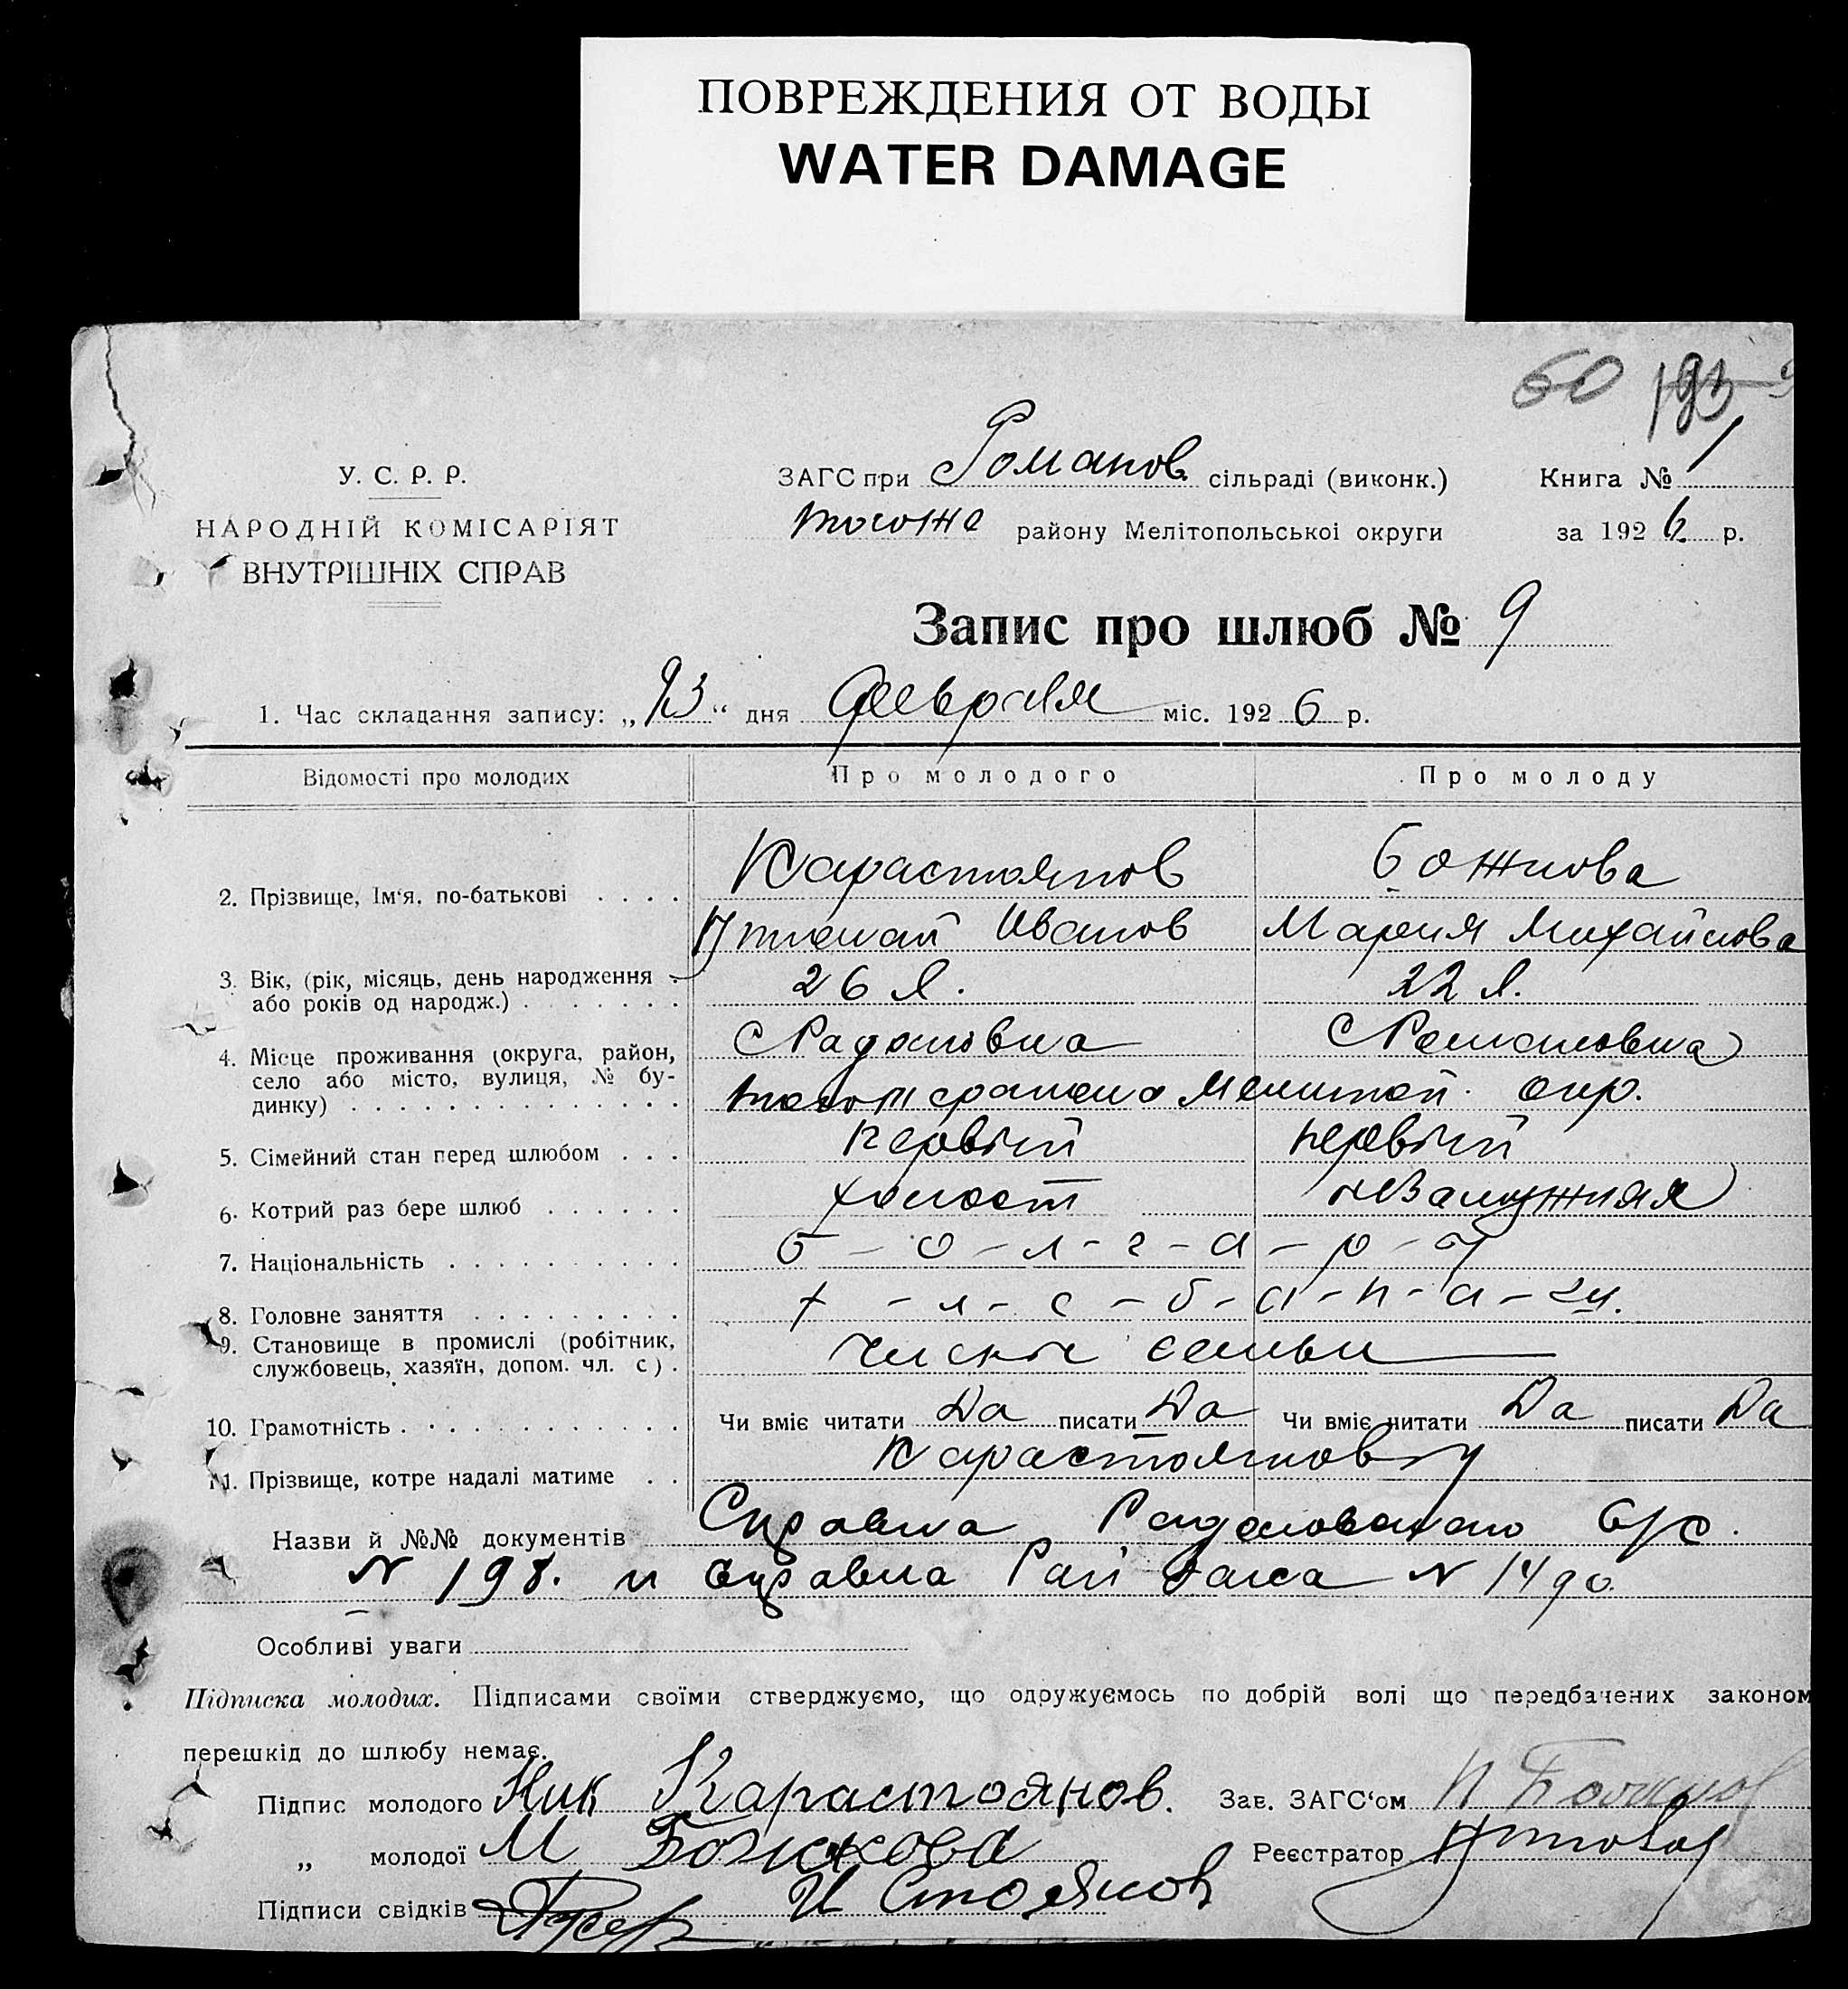 ПОВРЕЖДЕНИЯ ОТ ВОДЫ
WATER DAMAGE
60 193
У. С. Р. Р.
НАРОДНІЙ КОМІСАРІЯТ
ВНУТРІШНІХ СПРАВ
ЗАГС при Романов. сільраді (виконк.) Книга № 1
тогоже району Мелітопольської округи за 1926 р.
Запис про шлюб № 9
1. Час складання запису: „23“ дня февраля міс. 1926 р.
Відомості про молодих Про молодого Про молоду
2. Прізвище, Ім'я, по-батькові . . . . Карастоянов Божкова
Иванов Мария Михайлова
3. Вік, (рік, місяць, день народження
або років од народж.) . . . . . . . 26 л. 22 л.
4. Місце проживання (округа, район,
село або місто, вулиця, № бу-
динку) . . . . . . . . . . . . . .
С Радоловка С Романовка
Мелитоп. окр.
5. Сімейний стан перед шлюбом . . . первый первый
6. Котрий раз бере шлюб . . . . . . холост незамужняя
7. Національність . . . . . . . . . . б - о - л - г - а - р - ы
8. Головне заняття . . . . . . . . . х - л - е - б - а - п - а - ш.
9. Становище в промислі (робітник,
службовець, хазяїн, допом. чл. с) .
семьи
10. Грамотність . . . . . . . . . . . . Чи вміє читати Да писати Да Чи вміє читати Да писати Да
11. Прізвище, котре надалі матиме . . Карастояновы
Назви й №№ документів Справка Радоловского
N 198. и справка Рай Загса N 1490.
Особливі уваги
Підписка молодих. Підписами своїми стверджуємо, що одружуємось по добрій волі що передбачених законом
перешкід до шлюбу немає.
Підпис молодого Ник Карастоянов. Зав. ЗАГС'ом
„ молодої М Божкова Реєстратор
Підписи свідків И Стоянов